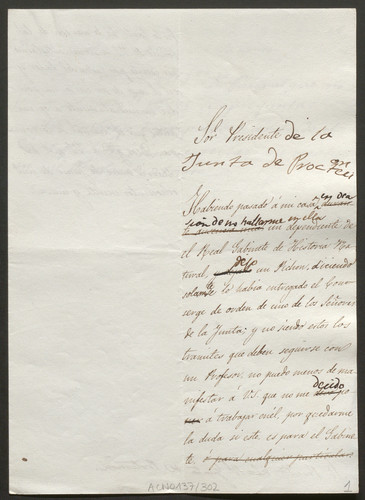 Sor. Presidente de la
Junta de Proc
Habiendo pasado á mi casa, en oca
sión de no hallarme en ella
un dependiente de
el Real Gabinete de Historia Na
tural, dejo un Pichon, diciendo
solamte. lo habia entregado el Con
serge de orden de uno de los Señores
de la Junta; y no siendo estos los
tramites que deben seguirse con
un Profesor, no puedo menos de ma
nifestar á VS. que no me decido
á trabajar en él, por quedarme
la duda si este es para el Gabine
te ó para cualquier particular
ACN0137/302
1